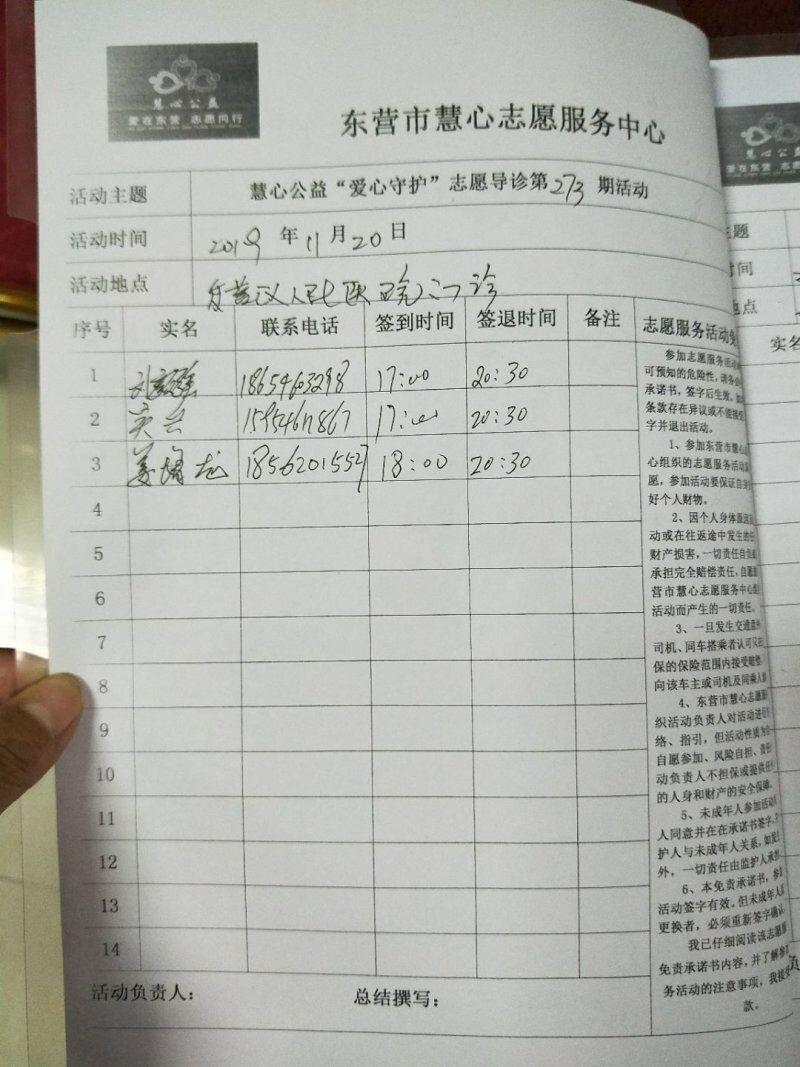 慧心公益
爱在东营 志愿同行
东营市慧心志愿服务中心
活动主题 慧心公益“爱心守护”志愿导诊第273期活动
活动时间 2019年11月20日
活动地点 人民医院门诊
序号 实名 联系电话 签到时间 签退时间 备注 志愿服务活动免
1 18654603298 17:00 20:30
2 17:00 20:30
3 姜 龙 18562015527 18:00 20:30
4
5
6
7
8
9
10
11
12
13
14
参加志愿服务活动
可预知的危险性,请务必
承诺书,签字后生效。如
条款存在异议或不能接受
字并退出活动。
1、参加东营市慧心
心组织的志愿服务活动
愿,参加活动要保证自身
好个人财物。
2、因个人身体原因
动或在往返途中发生的任
财产损害,一切责任自负
承担完全赔偿责任,自愿
营市慧心志愿服务中心
活动而产生的一切责任。
3、一旦发生交通意外
司机、同车搭乘者认可只在
保的保险范围内接受赔偿
向该车主或司机及同乘人
4、东营市慧心志愿服
织活动负责人对活动进行
络、指引,但活动性质为
自愿参加、风险自担、责任
动负责人不担保或提供任
的人身和财产的安全保障
5、未成年人参加活动
人同意并在在承诺书签字,
护人与未成年人关系,如发
外,一切责任由监护人承
6、本免责承诺书,参
活动签字有效。但未成年人
更换者,必须重新签字确认
我已仔细阅读该志愿服
免责承诺书内容,并了解参
务活动的注意事项,我接受
款。
活动负责人: 总结撰写:
主题
时间
地点
实名